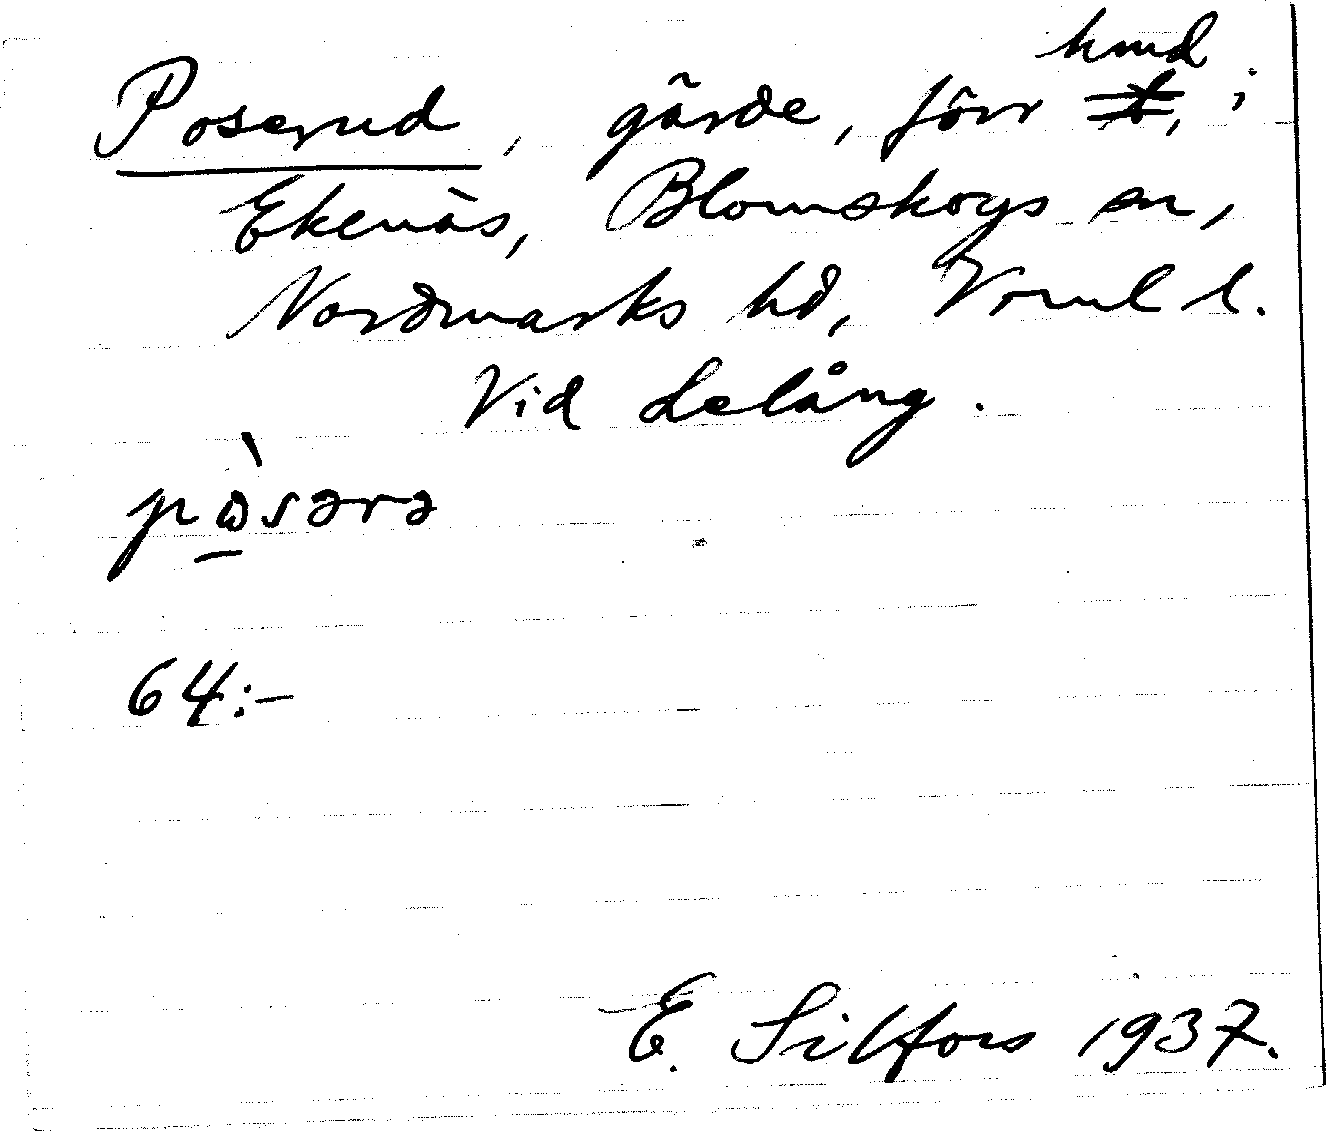 Poserud, gärde, förr hmd i
Ekenäs, Blomskogs sn,
Nordmarks hd, Vrml l.
Vid Lelång.
64:-
E. Silfors 1937.